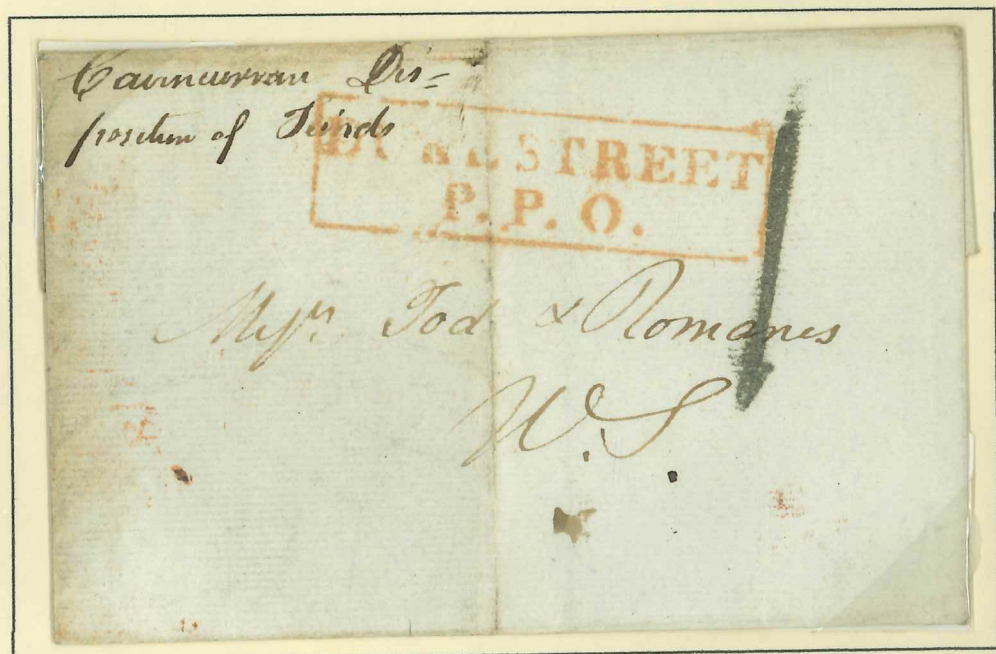 Cairncurran Dis=
position of Funds
DUKE STREET
P. P. O.
Messrs Tod & Romanes
W. S.